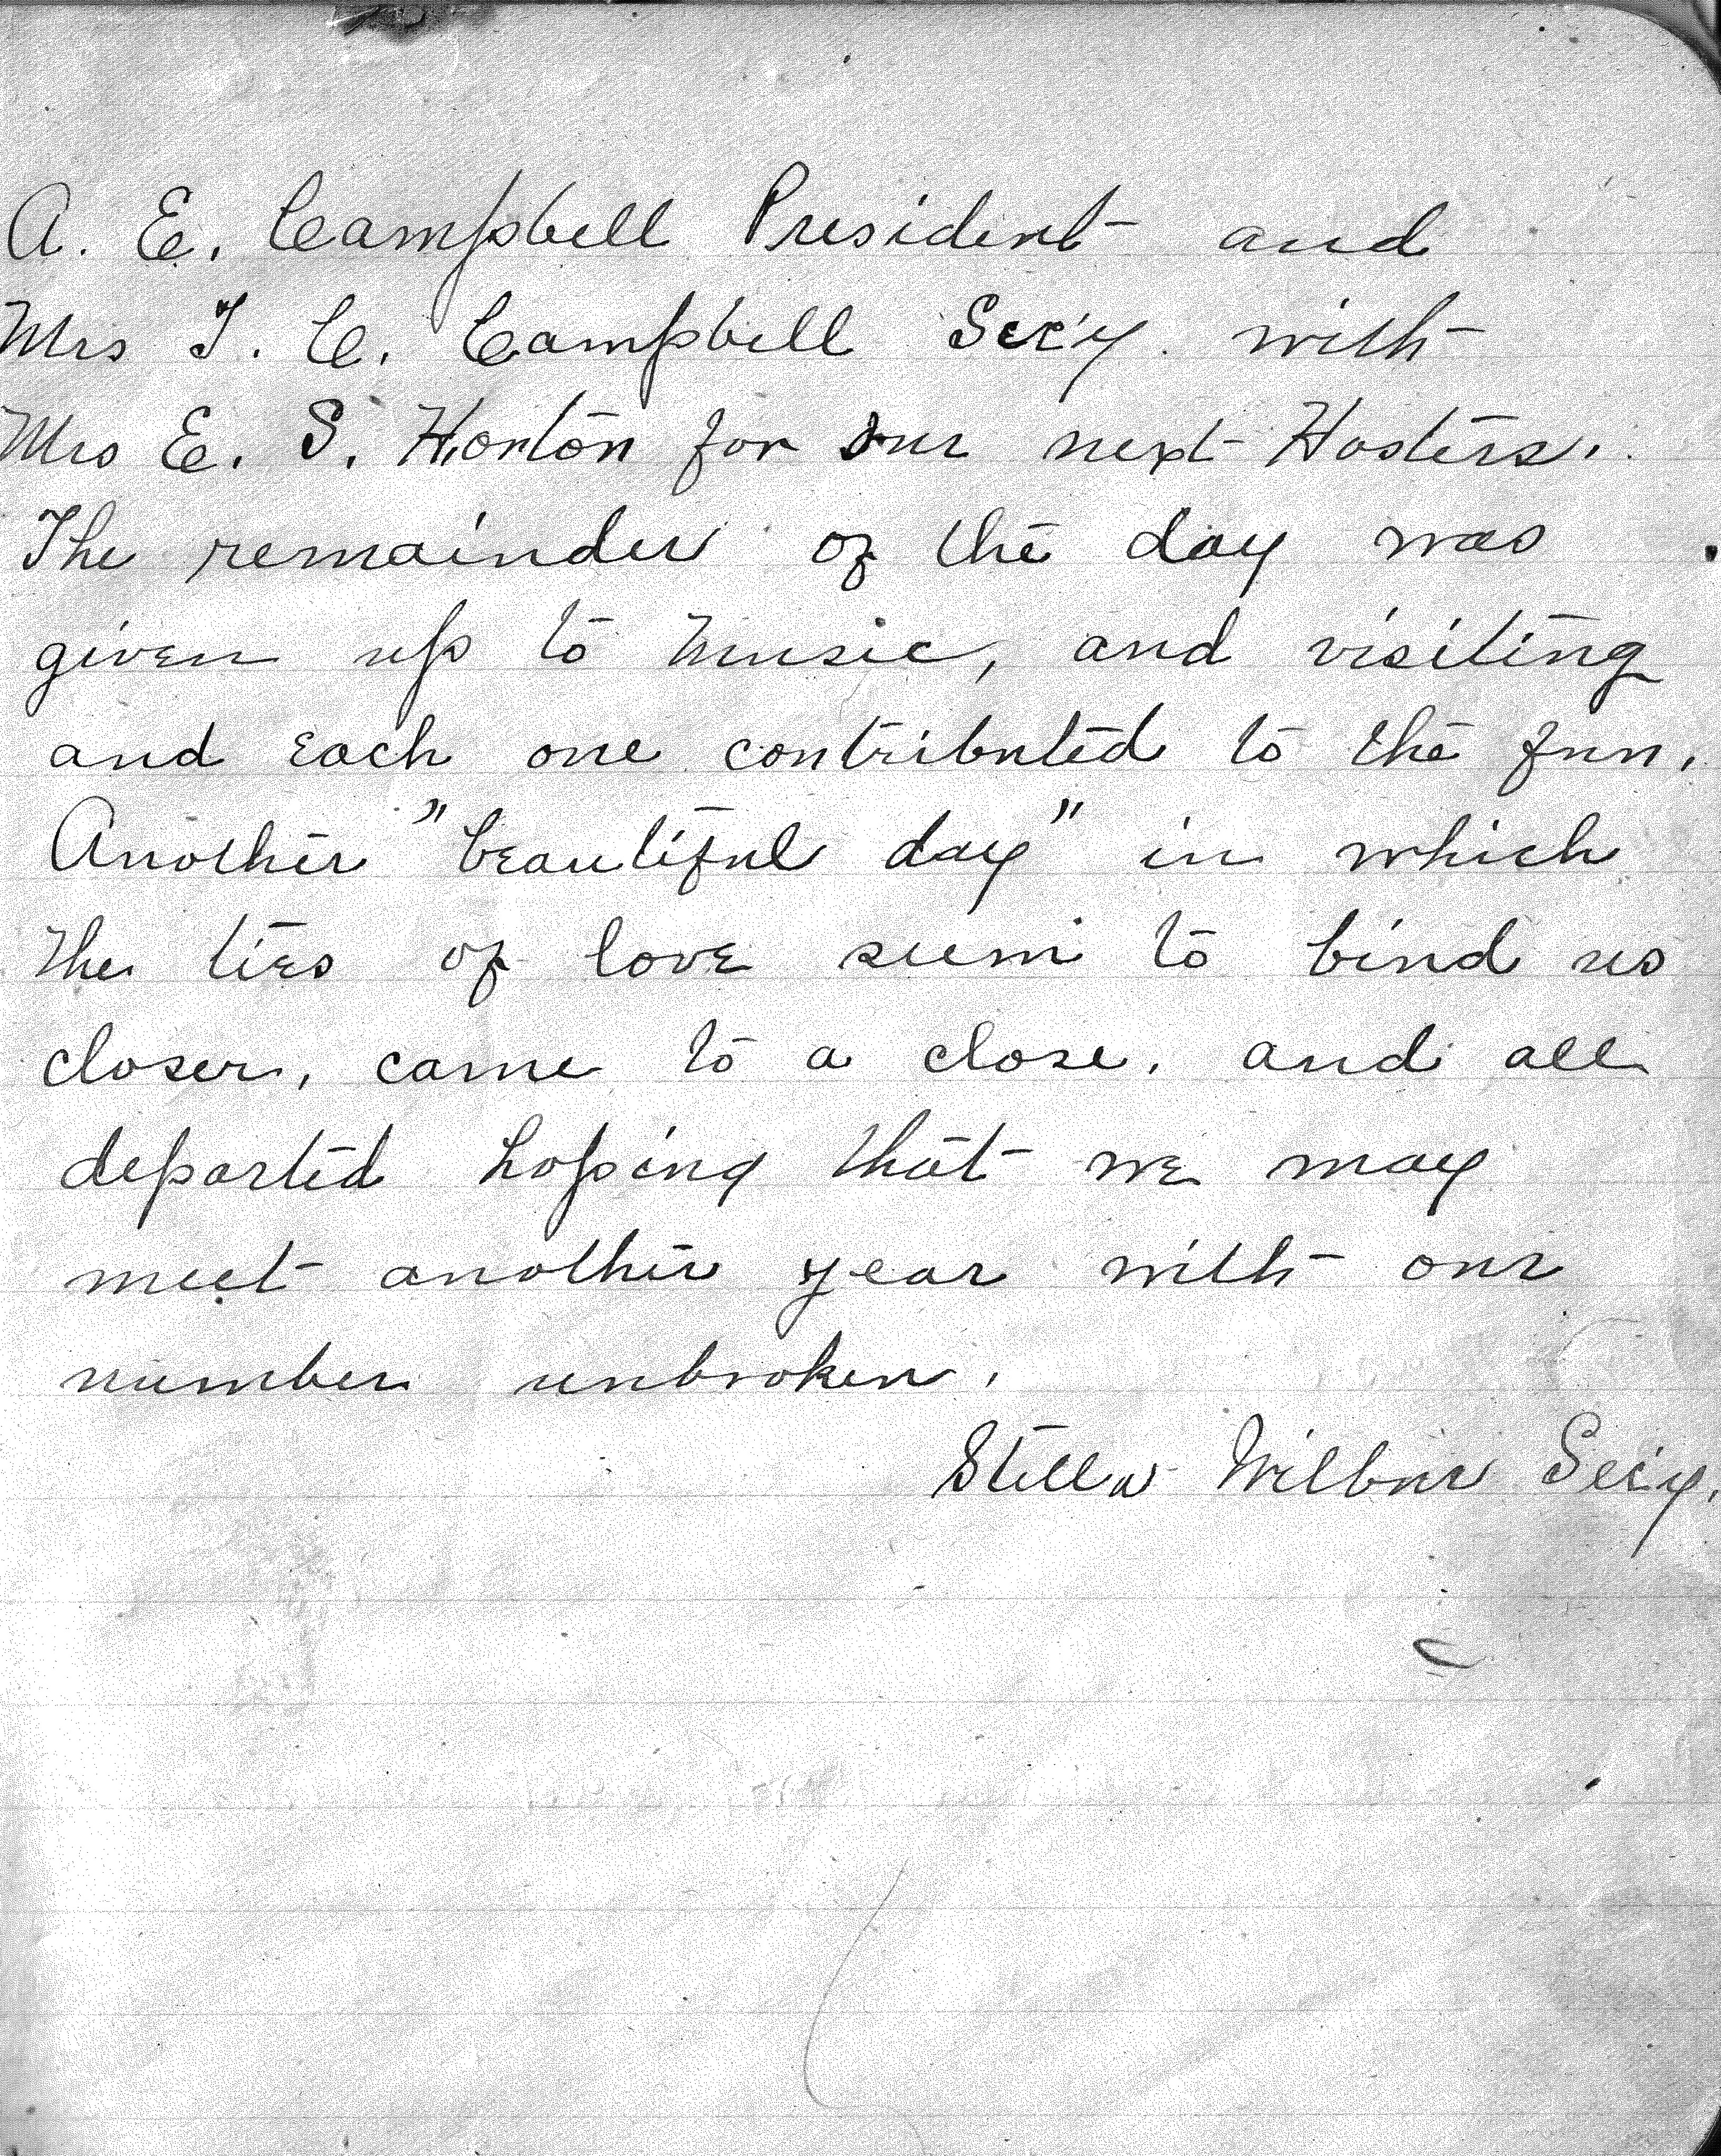 A. E. Campbell President and
Mrs T. C. Campbell Sec'y. with
Mrs E. S. Horton for our next Hostess.
The remainder of the day was
given up to Music, and visiting
and each one contributed to the fun.
Another "beautiful day" in which
the ties of love seem to bind us
closer, came to a close, and all
departed hoping that we may
meet another year with our
number unbroken.
Stella Wilbur Sec'y.